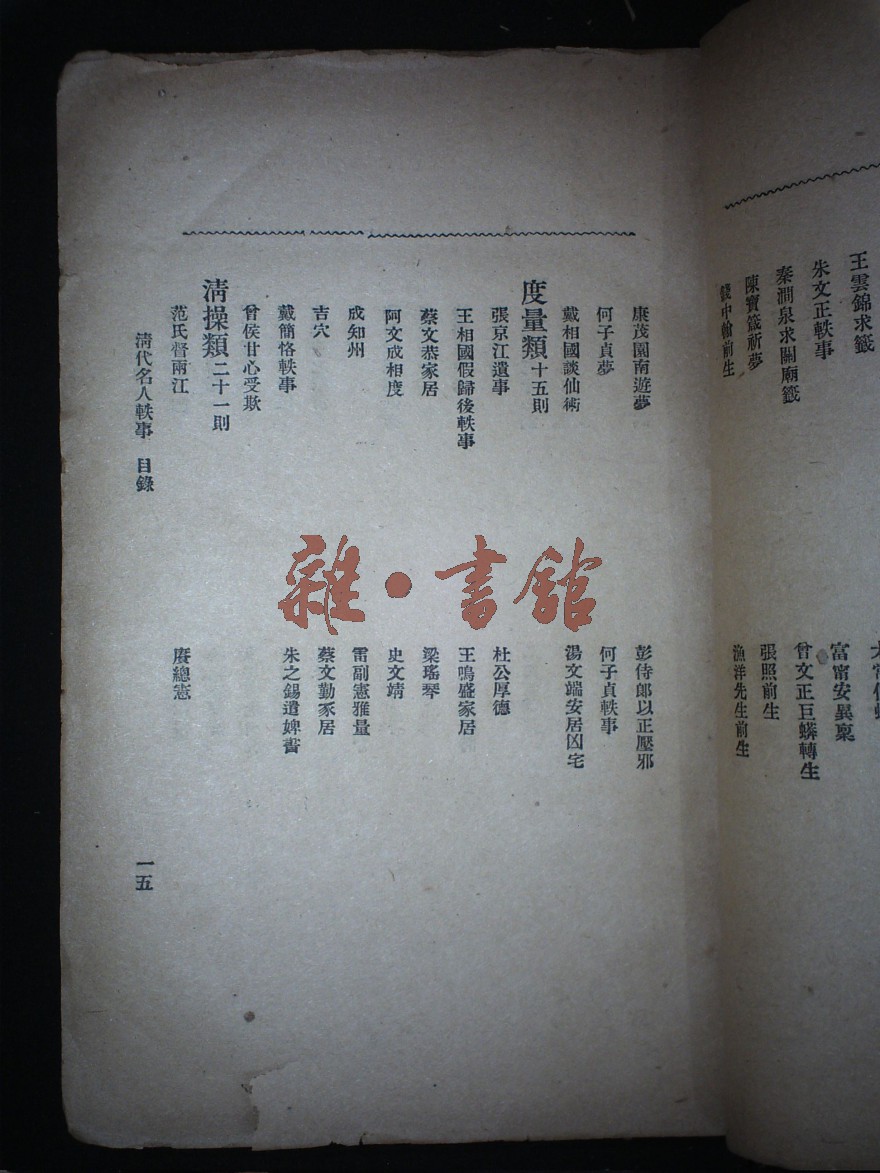 王雲錦求籤
朱文正軼事
秦澗泉求關廟籤
陳寶籤祈夢
錢中翰前生
富甯安異稟
曾文正巨蟒轉生
張照前生
漁洋先生前生
康茂園南遊夢
彭侍郎以正壓邪
何子貞夢
何子貞軼事
戴相國談仙術
湯文端安居凶宅
度量類十五則
張京江遺事
杜公厚德
王相國假歸後軼事
王鳴盛家居
蔡文恭家居
梁瑤琴
阿文成相度
史文靖
成知州
雷副憲雅量
吉穴
蔡文勤家居
戴簡恪軼事
朱之錫遺婢書
曾侯甘心受欺
清操類二十一則
范氏督兩江
賡總憲
清代名人軼事 目錄
一五
雜·書館